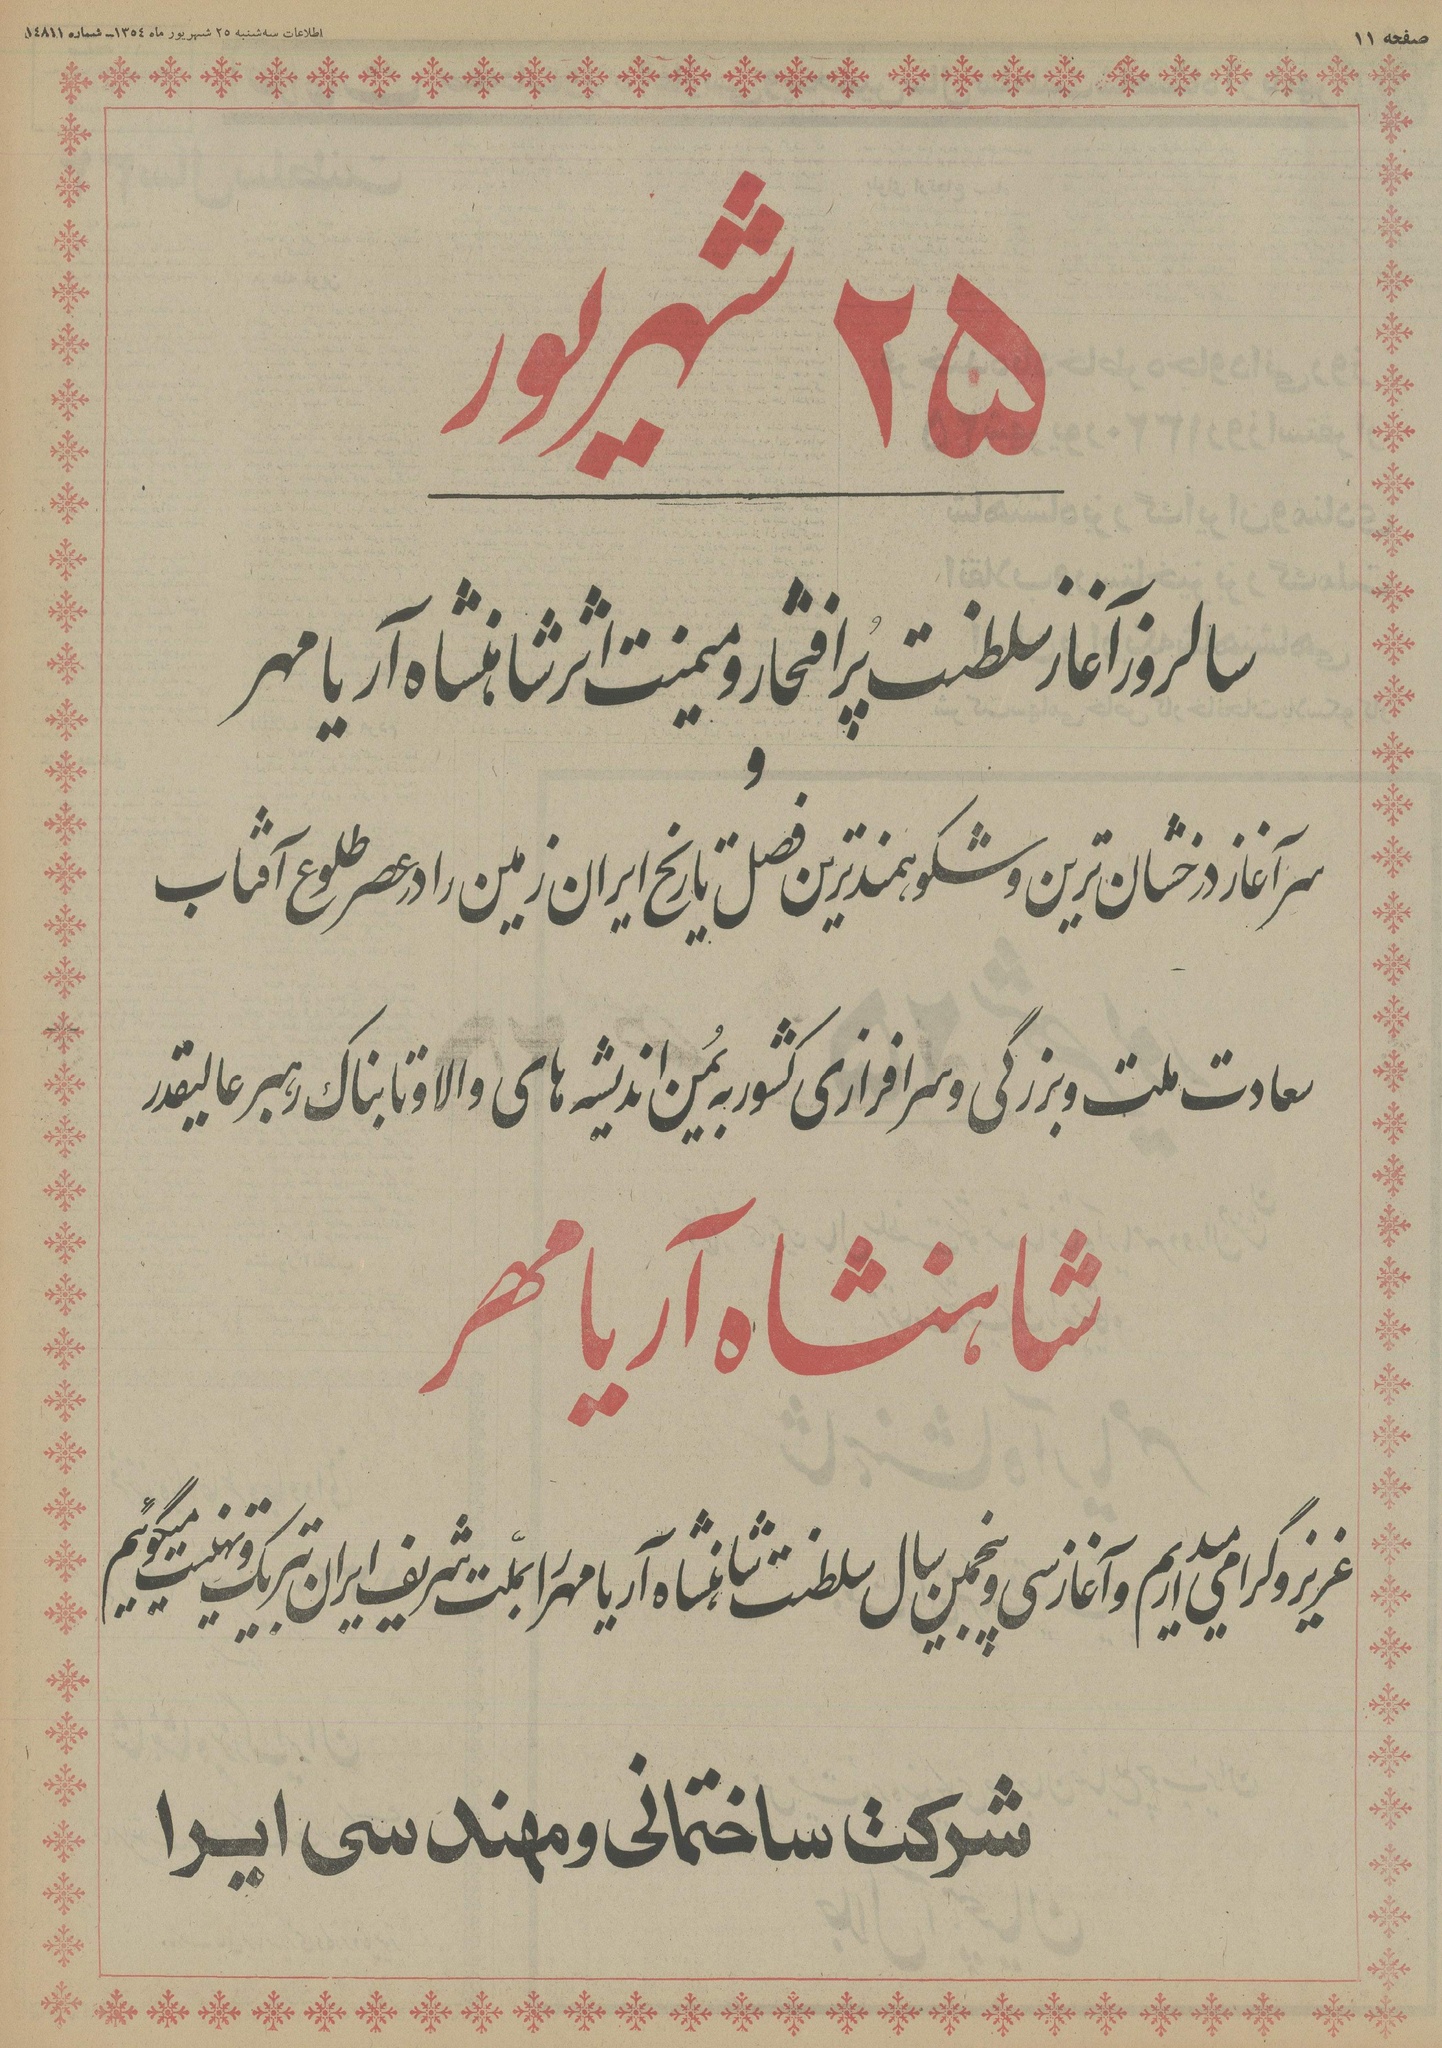 صفحه ۱۱
اطلاعات سه‌شنبه ۲۵ شهریور ماه ۱۳۵۴ـ شماره ۱۴۸۱۱
۲۵ شهریور
سالروز آغاز سلطنت پُر افتخار و میمنت اثر شاهنشاه آریامهر
و
سرآغاز درخشان‌ترین و شکوهمندترین فصل تاریخ ایران زمین را در عصر طلوع آفتاب
سعادت ملت و بزرگی و سرافرازی کشور به یُمن اندیشه های والا و تابناک رهبر عالیقدر
شاهنشاه آریامهر
عزیز و گرامی میداریم و آغاز سی و پنجمین سال سلطنت شاهنشاه آریامهر را بملّت شریف ایران تبریک و تهنیت میگوئیم
شرکت ساختمانی و مهندسی ایرا